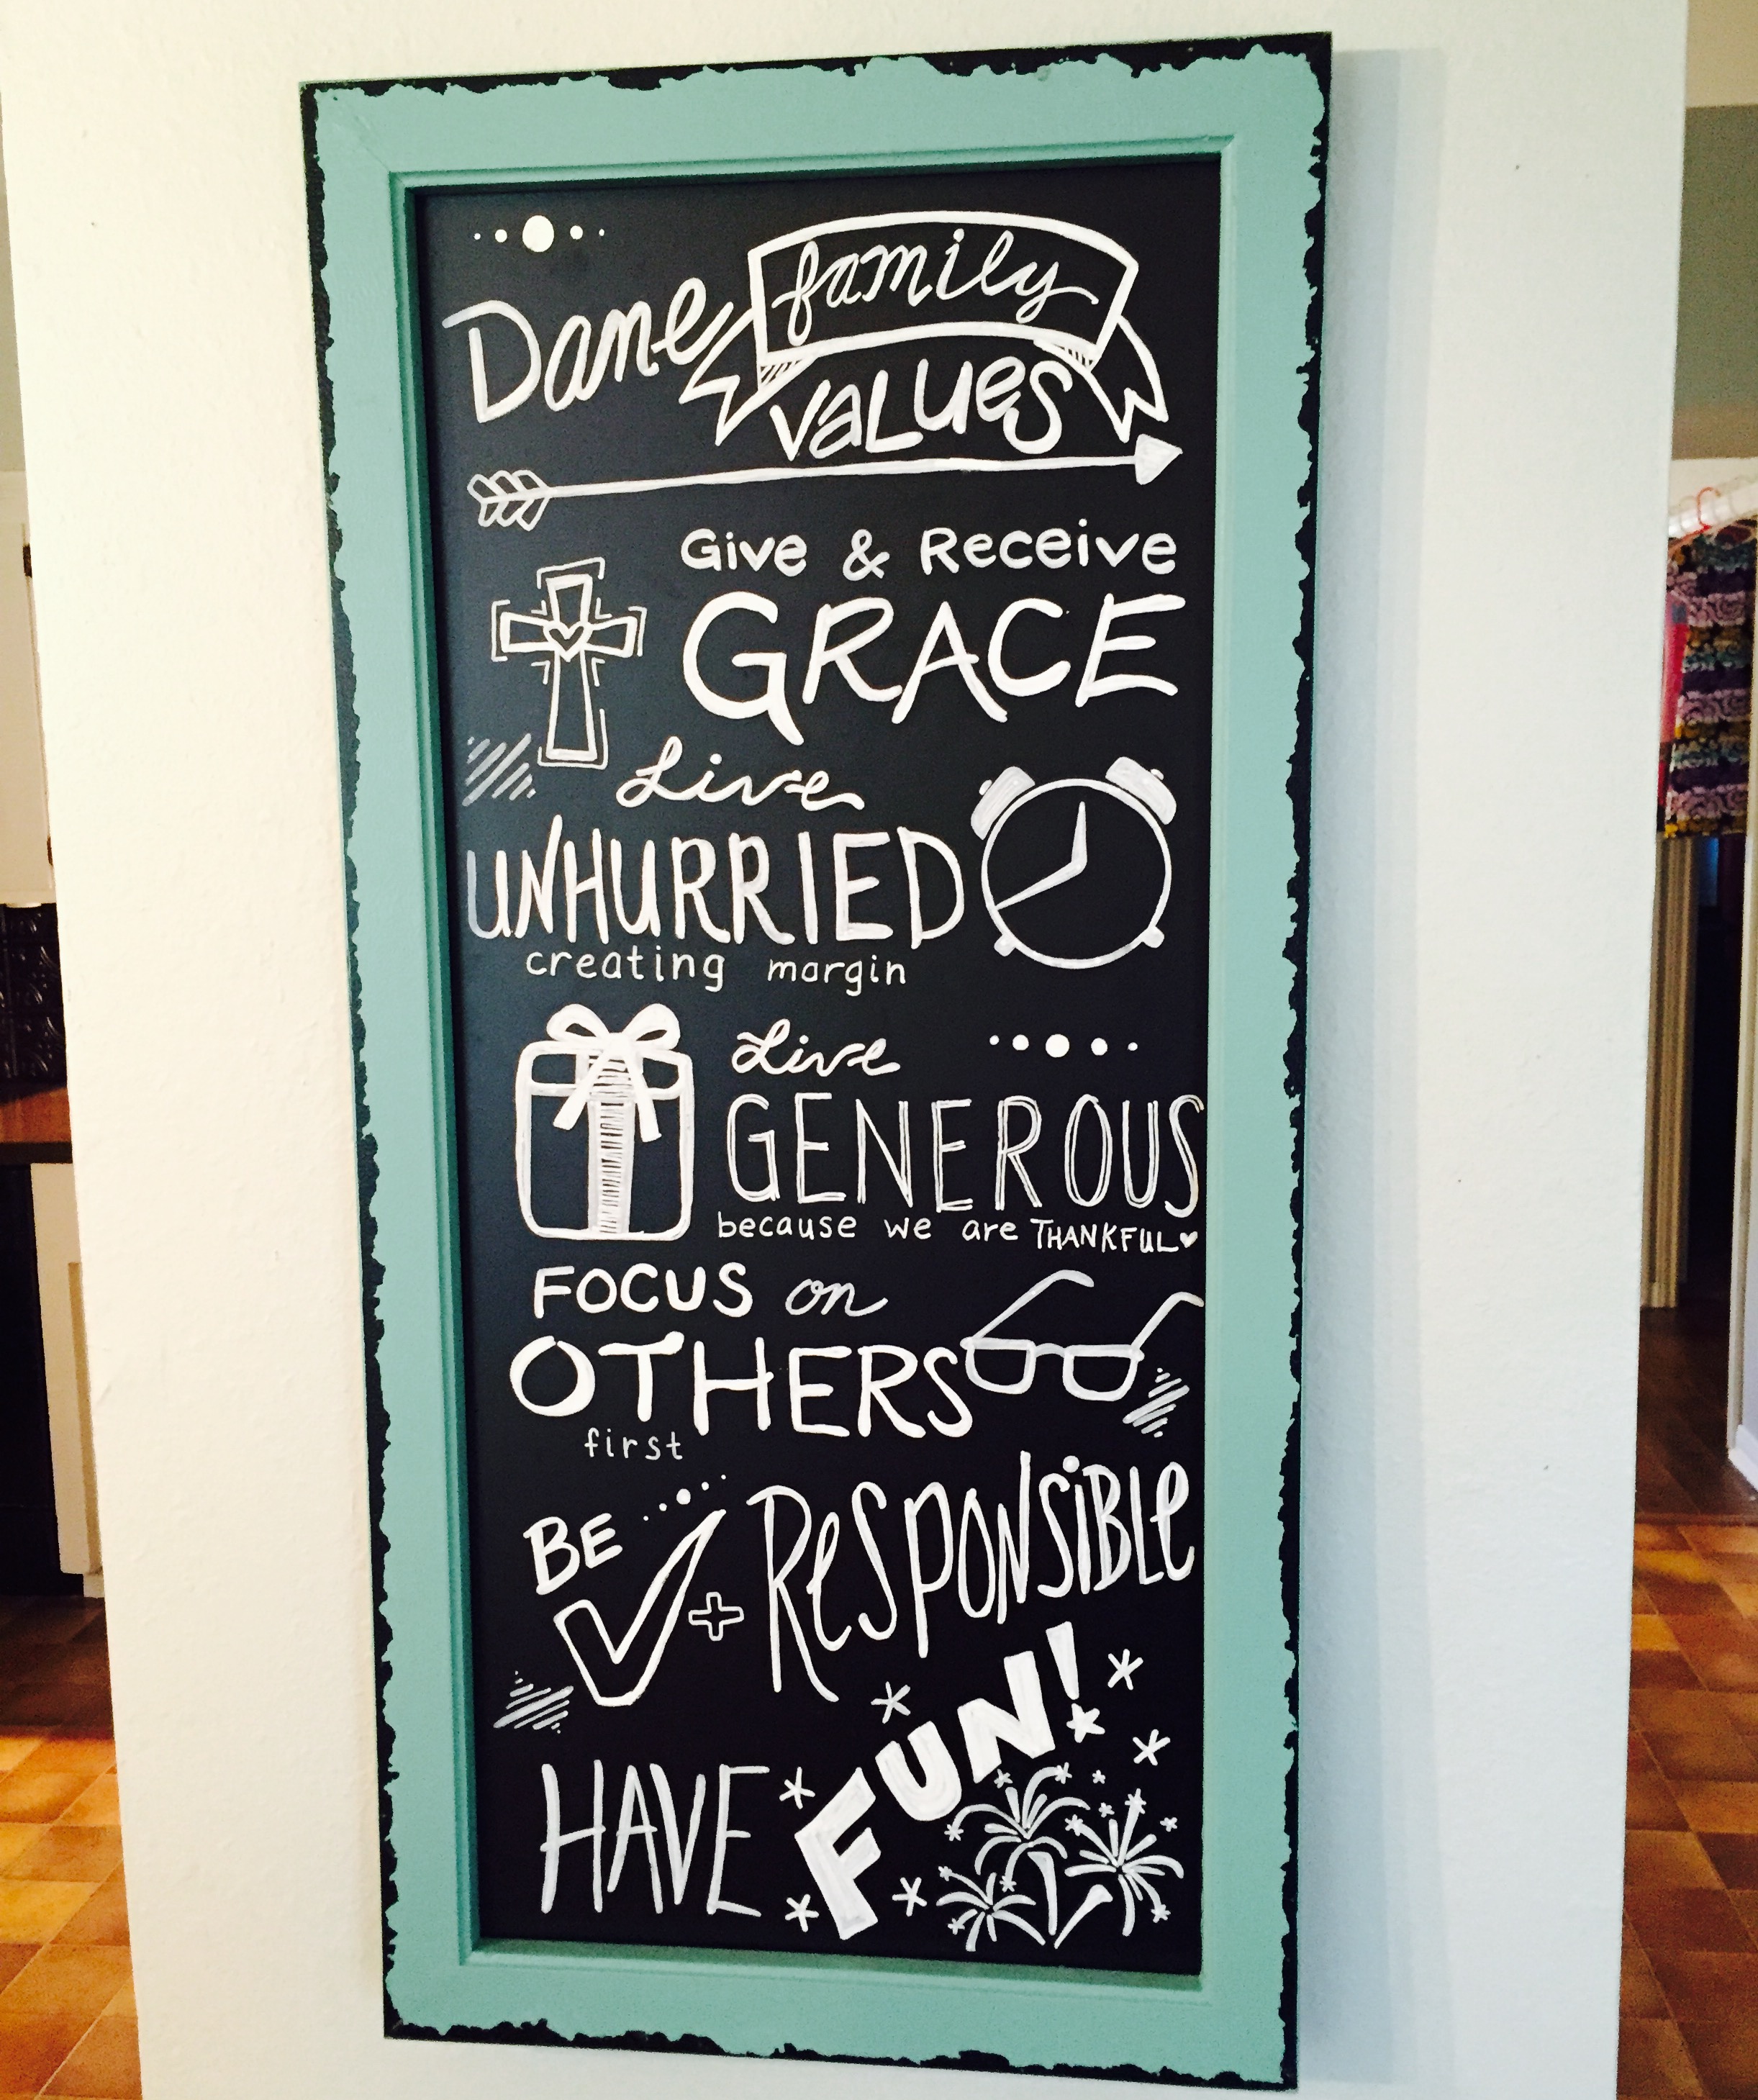 Dane family
values
Give & Receive
GRACE
Live
UNHURRIED
creating margin
Live
GENEROUS
because we are THANKFUL
FOCUS on
OTHERS
first
BE + ResponsiBLe
HAVE FUN!